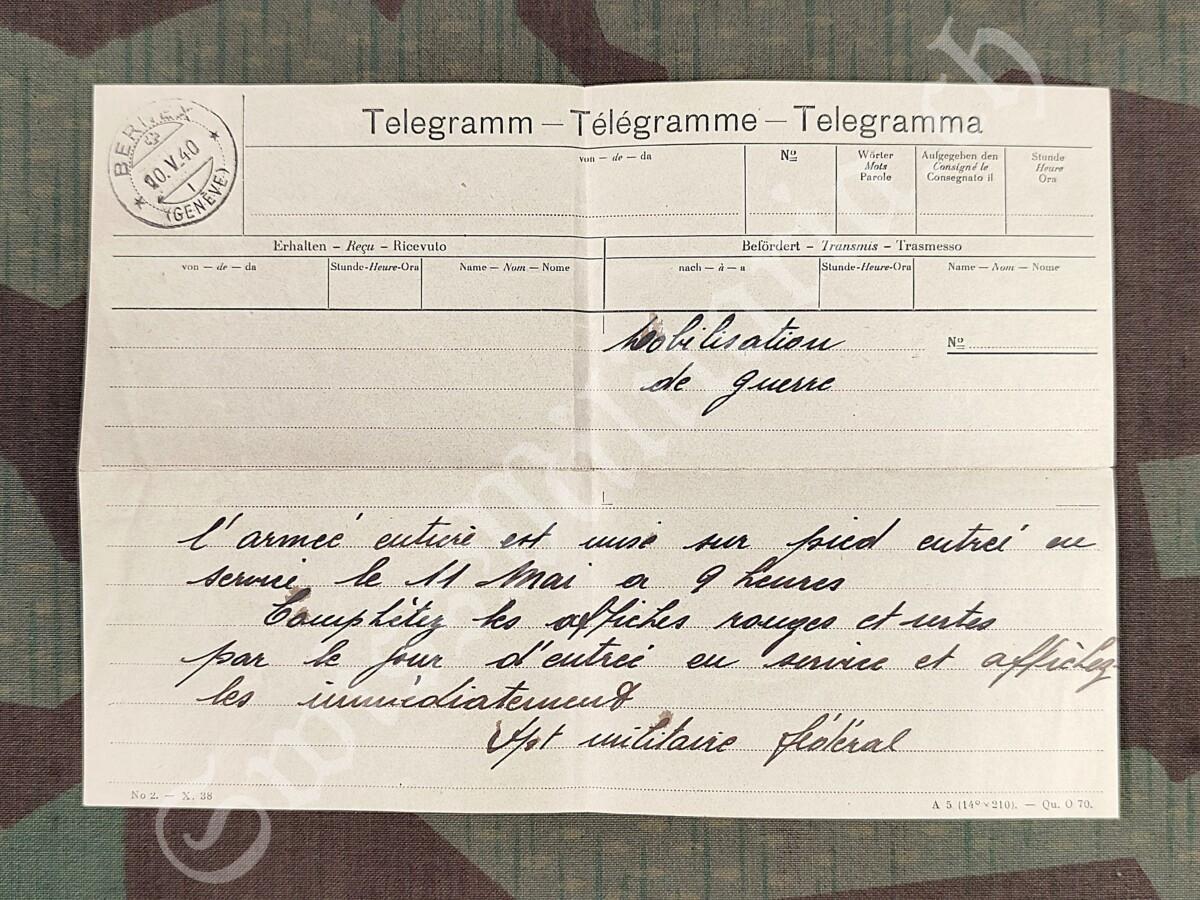 BERNEX
10.V.40
(GENÈVE)
Telegramm — Télégramme — Telegramma
von — de — da
Nº
Wörter
Mots
Parole
Aufgegeben den
Consigné le
Consegnato il
Stunde
Heure
Ora
Erhalten – Reçu – Ricevuto
Befördert – Transmis – Trasmesso
von — de — da
Stunde-Heure-Ora
Name – Nom – Nome
nach — à — a
Stunde-Heure-Ora
Name – Nom – Nome
Mobilisation
Nº
de guerre
l'armée entière est mise sur pied entrée en
service le 11 Mai a 9 heures
Complétez les affiches rouges et vertes
par le jour d'entrée en service et affichez-
les immédiatement
Dpt militaire fédéral
No 2. — X. 38
A 5 (148×210). — Qu. O 70.